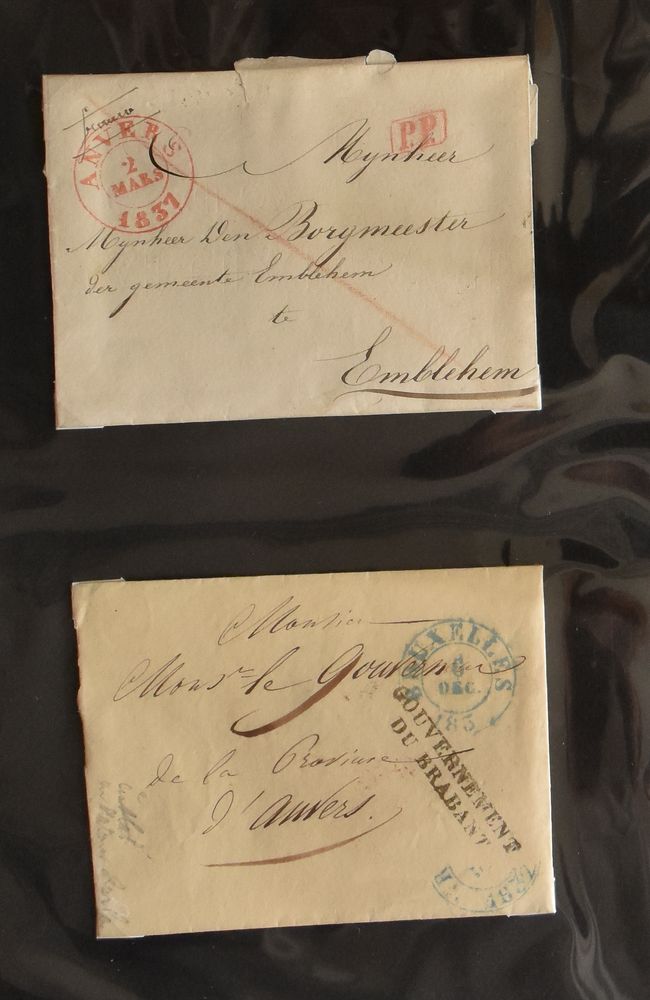 franco
ANVERS
2
MARS
1837
P.P.
Mynheer
Mynheer Den Borgmeester
der gemeente Emblehem
te
Emblehem
Monsieur
Monsr le Gouverneur
de la Province
d'anvers.
BRUXELLES
DEC.
183
GOUVERNEMENT
DU BRABANT